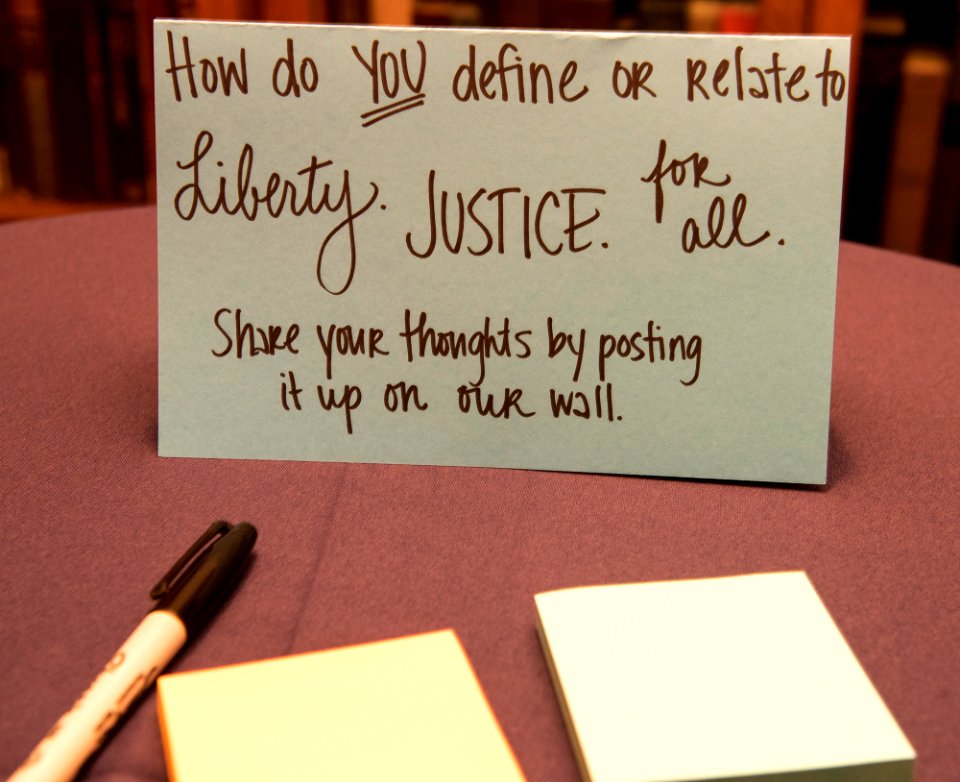 How do YOU define OR Relate to
Liberty. JUSTICE. for all.
Share your thoughts by posting
it up on our wall.